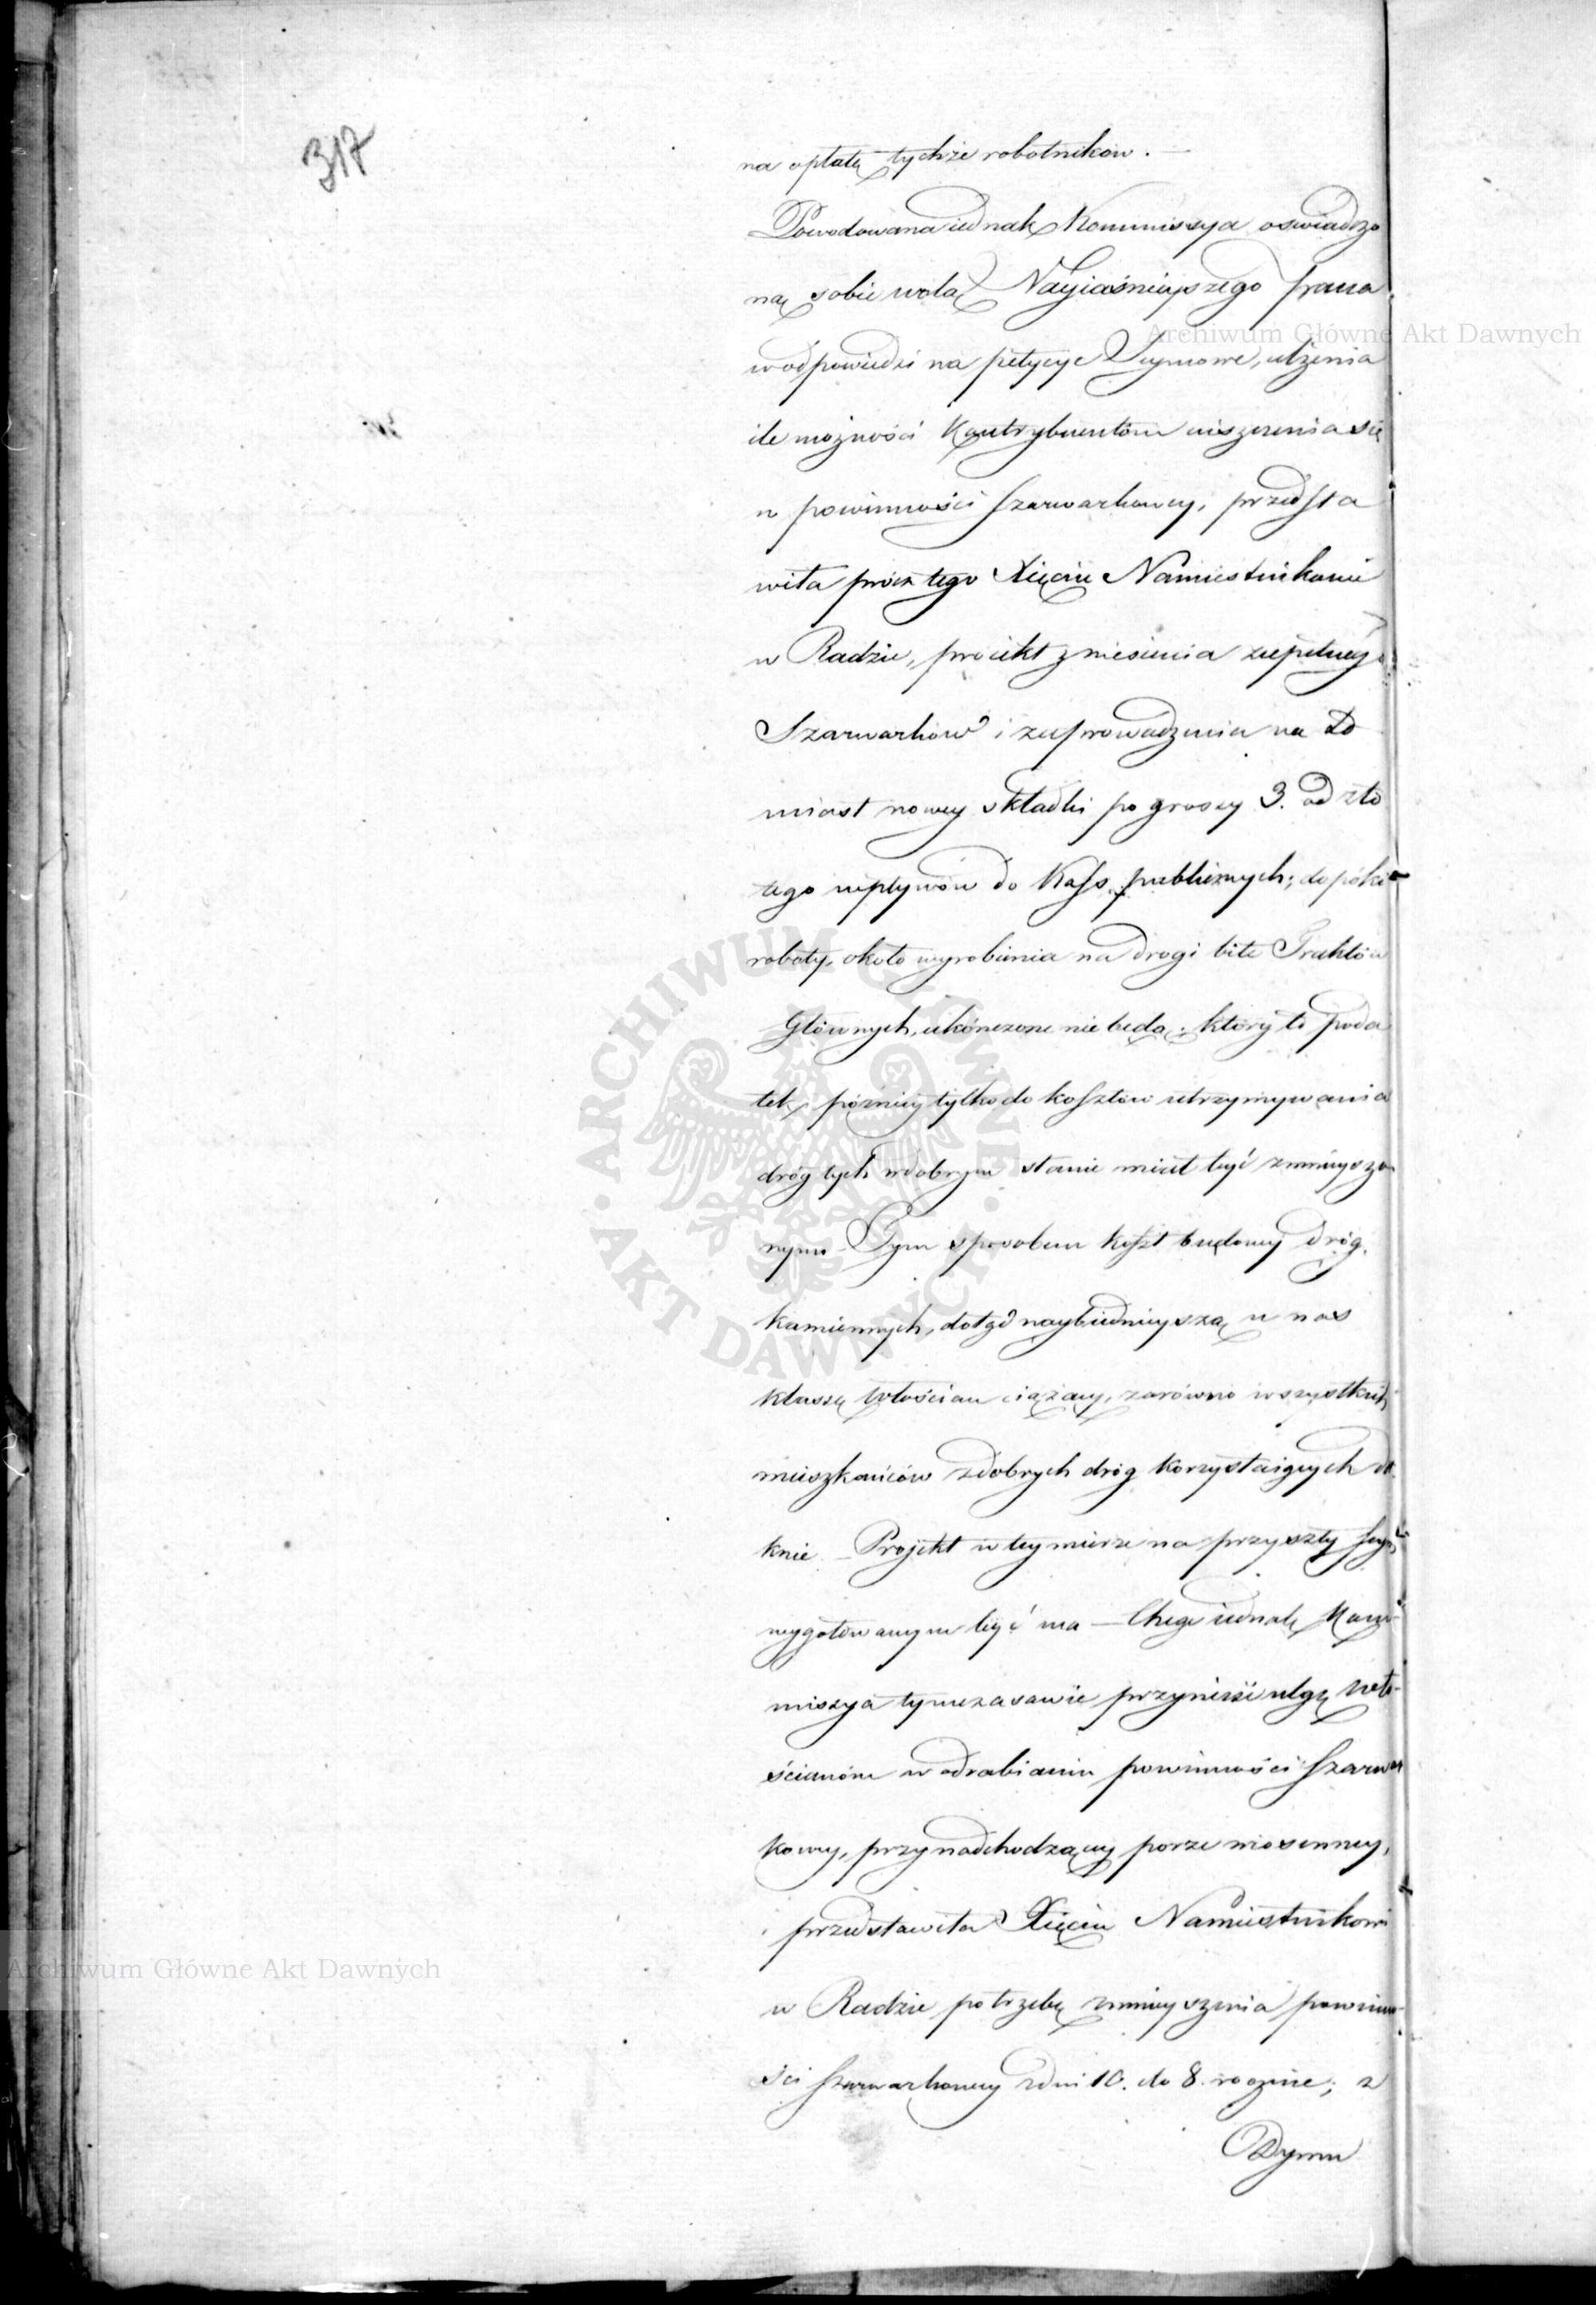 317
na opłatę tychże robotników. —
Powodowana iednak Kommissya oswiadczo
ną sobie wolą Nayiaśnieyszego Pana
w odpowiedzi na petycye Seymowe, ulżenia
ile możności Kontrybuentom uiszczenia się
w powinności Szarwarkowey, przedsta
wiła prócz tego Xięciu Namiestnikowi
w Radzie, proiekt zniesienia zupełnego
Szarwarków i zaprowadzenia na to
miast nowey składki po groszy 3. od zło
tego wpływów do Kass publicznych; dopóki
roboty, około wyrobienia na drogi bite Traktów
Głównych, ukończone nie będą; który to poda
tek, pózniey tylko do kosztów utrzymywania
dróg tych w dobrym stanie miał być zmnieyszo
nym — Tym sposobem koszt budowy dróg
kamiennych, dotąd naybiednieyszą u nas
klassę włościan ciążący, zarówno wszystkich
mieszkańców z dobrych dróg korzystaiących do
knie — Projekt w tey mierze na przyszły Seym
wygotowanym być ma — Chcąc iednak Kom
missya tymczasowie przynieść ulgę wło-
ścianóm w odrabianiu powinności Szarwar
kowey, przy nadchodzącey porze wiosenney,
przedstawiła Xięciu Namiestnikowi
w Radzie potrzebę zmnieyszenia powinno-
ści Szarwarkowey z dni 10. do 8. rocznie; z
Dymu
Archiwum Główne Akt Dawnych
Archiwum Główne Akt Dawnych
ARCHIWUM GŁÓWNE · AKT DAWNYCH ·